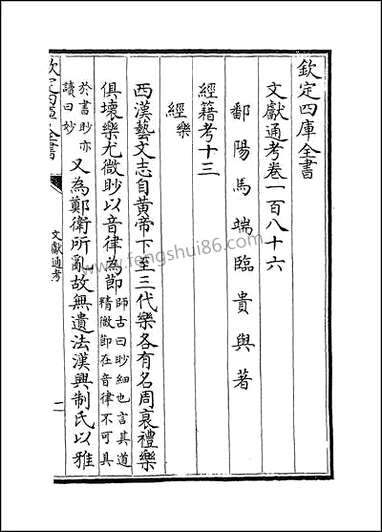 欽定四庫全書
文獻通考卷一百八十六
鄱陽馬端臨貴與著
經籍考十三
經樂
西漢藝文志自黄帝下至三代樂各有名周衰禮樂
俱壞樂尤微眇以音律為節師古曰眇細也言其道精微節在音律不可具
於書眇亦讀曰妙又為鄭衛所亂故無遺法漢興制氏以雅
欽定四庫全書
文獻通考
一
www.fengshui86.com